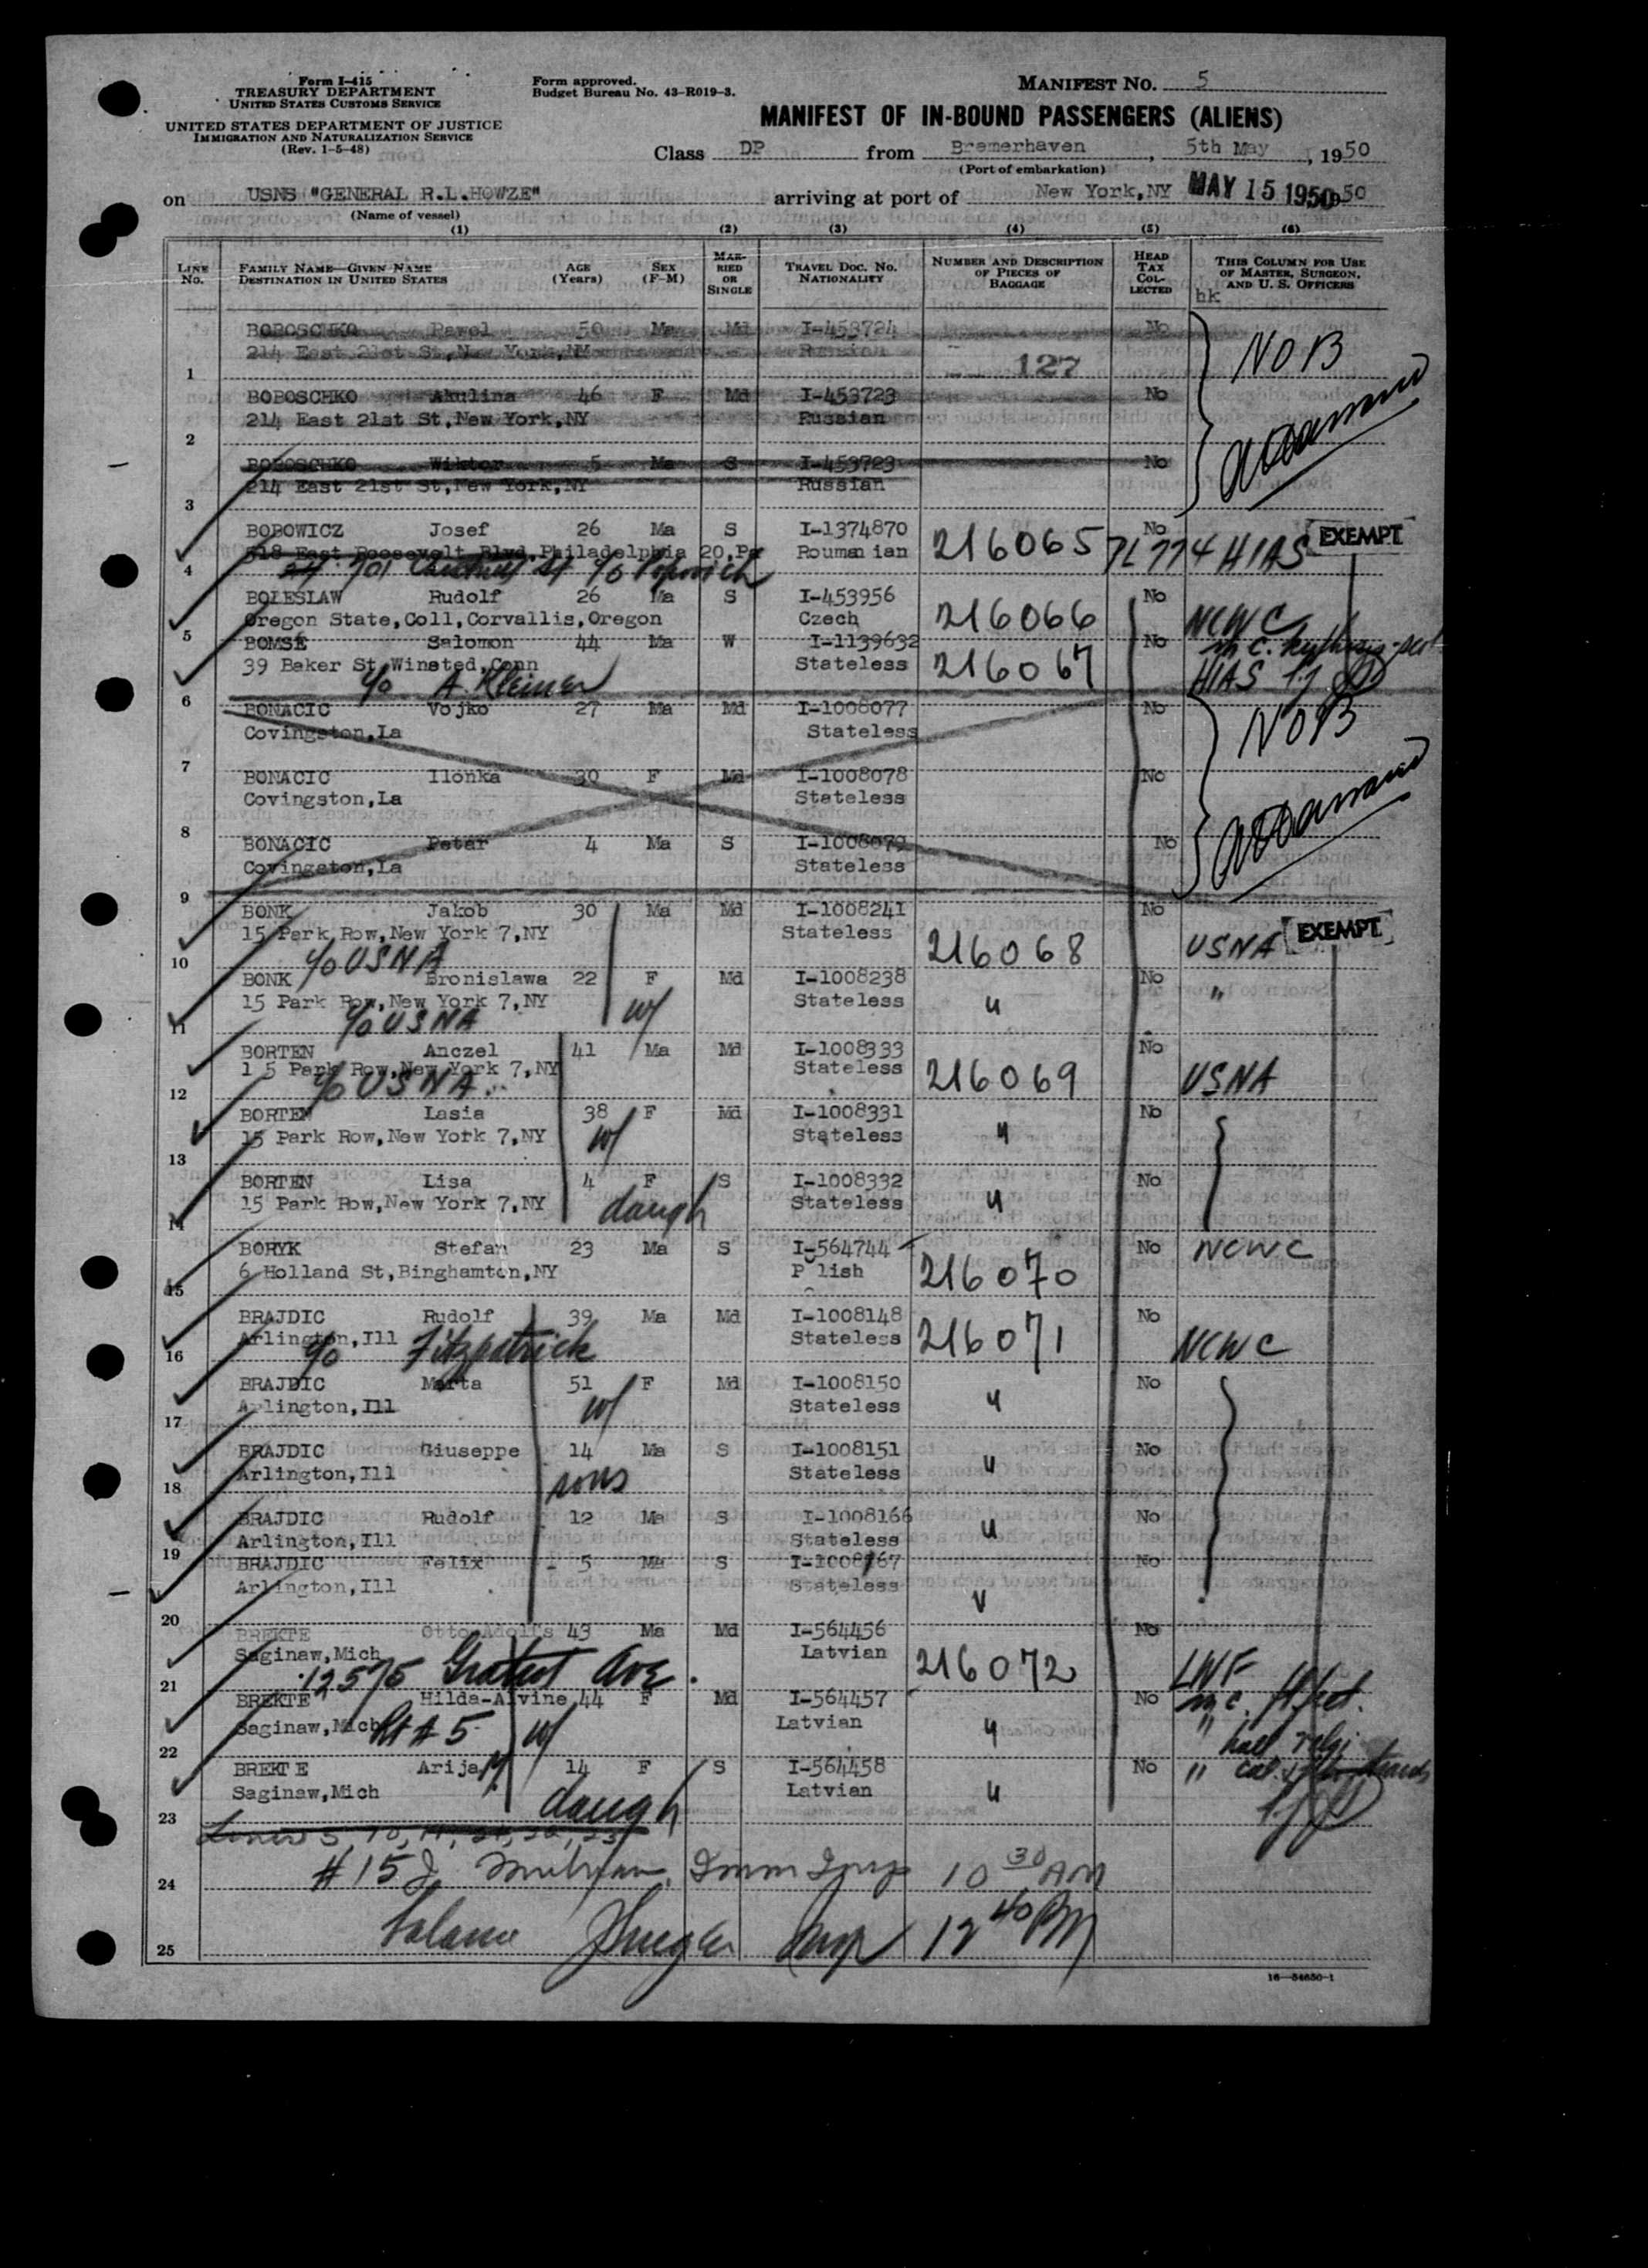 Form I-415
TREASURY DEPARTMENT
UNITED STATES CUSTOMS SERVICE
UNITED STATES DEPARTMENT OF JUSTICE
IMMIGRATION AND NATURALIZATION SERVICE
(Rev. 1-5-48)
Form approved.
Budget Bureau No. 43-R019-3.
MANIFEST No. 5
MANIFEST OF IN-BOUND PASSENGERS (ALIENS)
Class DP from Bremerhaven, 5th May, 1950
(Port of embarkation)
on USNS "GENERAL R.L.HOWZE" arriving at port of New York,NY MAY 15 1950 50
(Name of vessel)
(1) (2) (3) (4) (5) (6)
LINE No. FAMILY NAME—GIVEN NAME DESTINATION IN UNITED STATES AGE (Years) SEX (F-M) MARRIED OR SINGLE TRAVEL DOC. No. NATIONALITY NUMBER AND DESCRIPTION OF PIECES OF BAGGAGE HEAD TAX COLLECTED THIS COLUMN FOR USE OF MASTER, SURGEON, AND U. S. OFFICERS
hk
BOBOSCHKO Pawel 50 Ma Md I-453724 No
214 East 21st St,New York,NY Russian
1 127 NOB
BOBOSCHKO Akulina 46 F Md I-453723 No
214 East 21st St,New York,NY Russian
2
BOBOSCHKO Wiktor 5 Ma S I-453723 No
214 East 21st St,New York,NY Russian
3
BOBOWICZ Josef 26 Ma S I-1374870 No EXEMPT
518 East Roosevelt Blvd,Philadelphia 20,Pa Roumanian 216065 7L774 HIAS
4 701 Chestnut St c/o Popovich
BOLESLAW Rudolf 26 Ma S I-453956 No
Oregon State,Coll,Corvallis,Oregon Czech 216066 NCWC
5
BOMSE Salomon 44 Ma W I-1139632 No
39 Baker St,Winsted,Conn Stateless 216067 HIAS
6 c/o A. Kleiner
BONACIC Vojko 27 Ma Md I-1008077 No NOB
Covingston,La Stateless
7
BONACIC Ilonka 30 F Md I-1008078 No
Covingston,La Stateless
8
BONACIC Petar 4 Ma S I-1008079 No
Covingston,La Stateless
9
BONK Jakob 30 Ma Md I-1008241 No
15 Park Row,New York 7,NY Stateless 216068 USNA EXEMPT
10 c/o USNA
BONK Bronislawa 22 F Md I-1008238 No
15 Park Row,New York 7,NY w/ Stateless " "
11 c/o USNA
BORTEN Anczel 41 Ma Md I-1008333 No
1 5 Park Row,New York 7,NY Stateless 216069 USNA
12 c/o USNA
BORTEN Lasia 38 F Md I-1008331 No
15 Park Row,New York 7,NY w/ Stateless "
13
BORTEN Lisa 4 F S I-1008332 No
15 Park Row,New York 7,NY daugh Stateless "
14
BORYK Stefan 23 Ma S I-564744 No NCWC
6 Holland St,Binghamton,NY P lish 216070
15
BRAJDIC Rudolf 39 Ma Md I-1008148 No
Arlington,Ill Stateless 216071 NCWC
16 c/o Fitzpatrick
BRAJDIC Marta 51 F Md I-1008150 No
Arlington,Ill w/ Stateless "
17
BRAJDIC Giuseppe 14 Ma S I-1008151 No
Arlington,Ill sons Stateless "
18
BRAJDIC Rudolf 12 Ma S I-1008166 No
Arlington,Ill Stateless "
19
BRAJDIC Felix 5 Ma S I-1008167 No
Arlington,Ill Stateless "
20
BREKTE Otto-Adolfs 43 Ma Md I-564456 No
Saginaw,Mich Latvian 216072 LWF
21 12575 Gratiot Ave.
BREKTE Hilda-Alvine 44 F Md I-564457 No
Saginaw,Mich Rt # 5 w/ Latvian "
22
BREKTE Arija M. 14 F S I-564458 No
Saginaw,Mich daugh Latvian "
23
24 #15 Imm Insp 10 30 AM
25 balance Insp 12 40 PM
16—54650-1